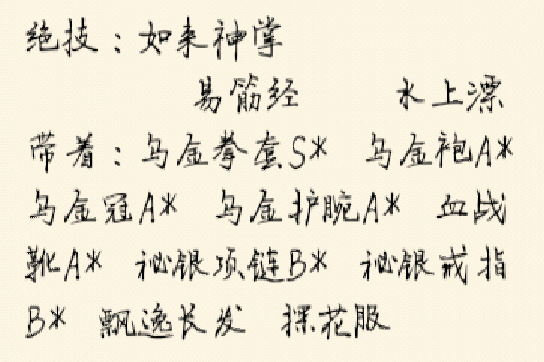 绝技：如来神掌
易筋经 水上漂
带着：乌金拳套S* 乌金袍A*
乌金冠A* 乌金护腕A* 血战
靴A* 秘银项链B* 秘银戒指
B* 飘逸长发 探花服